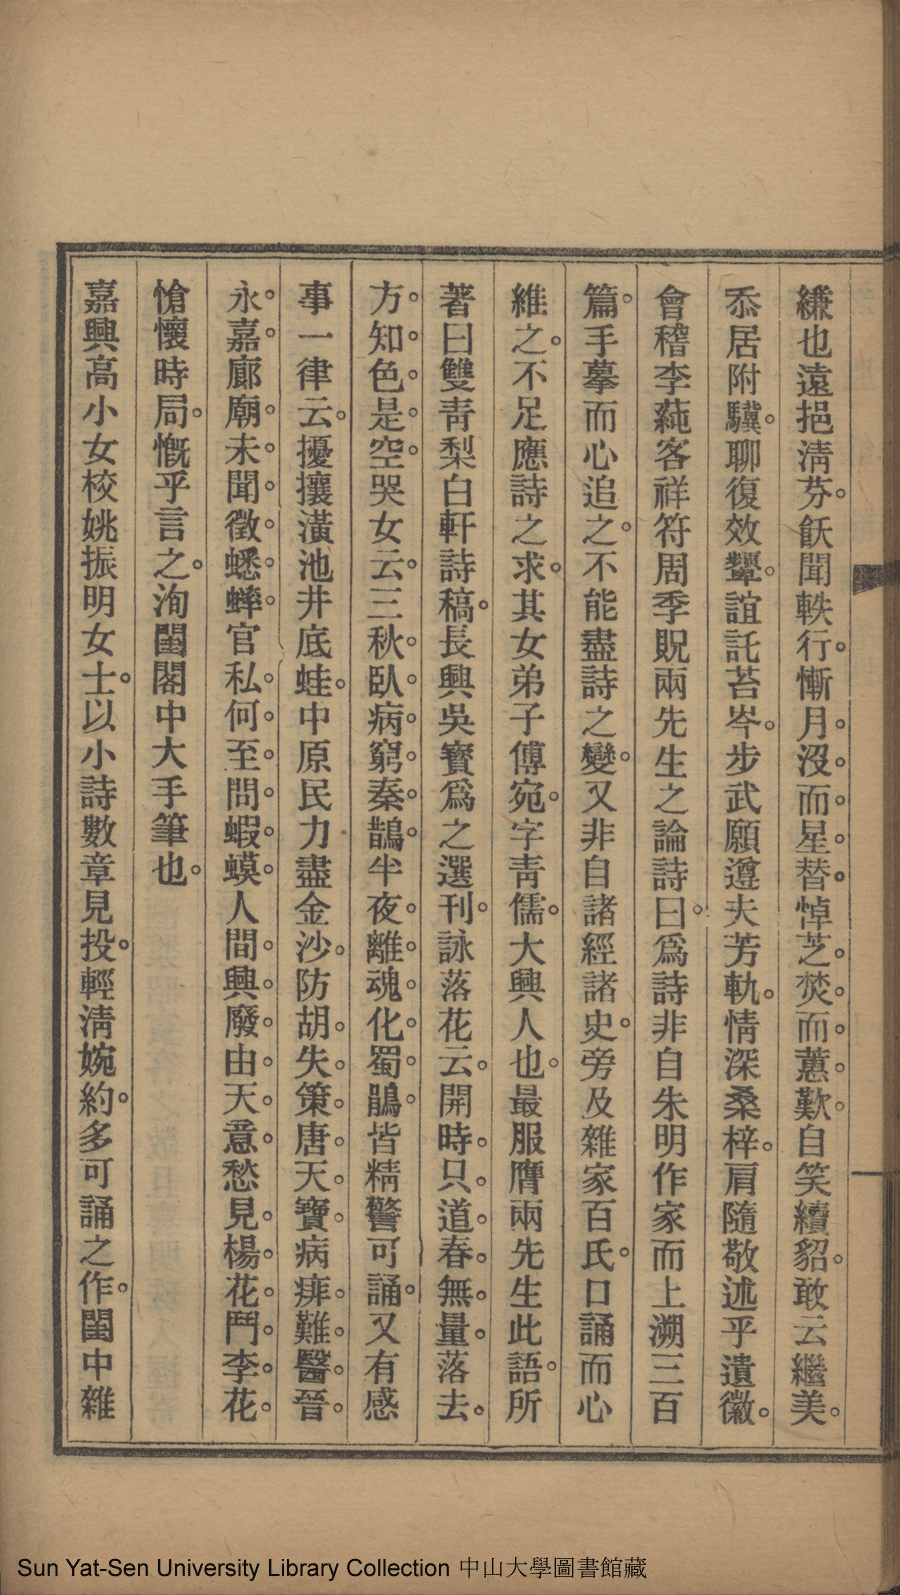 縑也遠挹淸芬。飫聞軼行。慚月沒而星替。悼芝焚而蕙歎。自笑續貂。敢云繼美。
忝居附驥。聊復效顰。誼託苔岑。步武願遵夫芳軌。情深桑梓。肩隨敬述乎遺徽。
會稽李蒓客祥符周季貺兩先生之論詩曰。爲詩非自朱明作家而上溯三百
篇。手摹而心追之。不能盡詩之變。又非自諸經諸史。旁及雜家百氏。口誦而心
維之。不足應詩之求。其女弟子傅宛。字靑儒。大興人也。最服膺兩先生此語。所
著曰雙靑梨白軒詩稿。長興吳寶爲之選刊。詠落花云。開時只道春無量。落去
方知色是空。哭女云。三秋臥病窮秦鵲。半夜離魂化蜀鵑。皆精警可誦。又有感
事一律云。擾攘潢池井底蛙。中原民力盡金沙。防胡失策唐天寶。病痱難醫晉
永嘉。廊廟未聞徵蟋蟀。官私何至問蝦蟆。人間興廢由天意。愁見楊花鬥李花。
愴懷時局。慨乎言之。洵閨閣中大手筆也。
嘉興高小女校姚振明女士。以小詩數章見投。輕淸婉約。多可誦之作。閨中雜
Sun Yat-Sen University Library Collection 中山大學圖書館藏